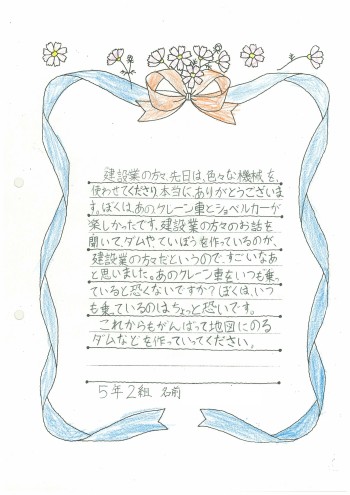 建設業の方々、先日は、色々な機械を、
使わせてくださり、本当に、ありがとうございま
す。ぼくは、あのクレーン車とショベルカーが
楽しかったです。建設業の方々のお話を
聞いて、ダムや、ていぼうを作っているのが、
建設業の方々だというので、すごいなあ
と思いました。あのクレーン車をいつも乗っ
ていると恐くないですか？ぼくは、いつ
も乗っているのはちょっと恐いです。
これからもがんばって地図にのる
ダムなどを作っていってください。
5年2組 名前